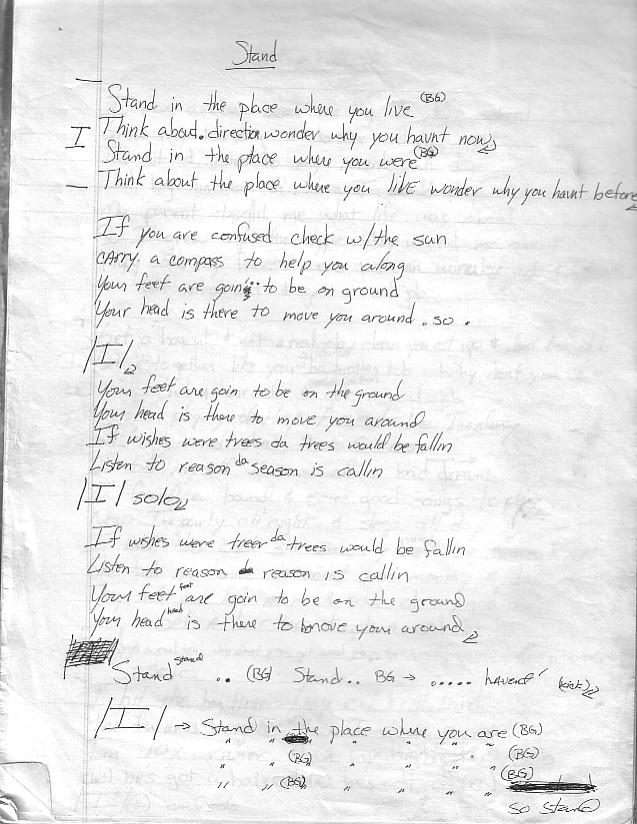 Stand
Stand in the place where you live (BG)
I Think about. direction wonder why you havnt now
Stand in the place where you were (BG)
Think about the place where you liVE wonder why you havnt before
If you are confused check w/the sun
CArry a compass to help you along
Your feet are goin to be on ground
Your head is there to move you around . so .
/I/
Your feet are goin to be on the ground
Your head is there to move you around
If wishes were trees da trees would be fallin
Listen to reason da season is callin
/I/ solo
If wishes were treer da trees would be fallin
Listen to reason da reason is callin
Your feet feet are goin to be on the ground
Your head head is there to move you around
Stand stand .. (BG) Stand.. BG → ..... hAvent' (kick)
/I/ → Stand in the place where you are (BG)
" " (BG) " " " " (BG)
" " (BG) " " " " (BG)
SO Stand